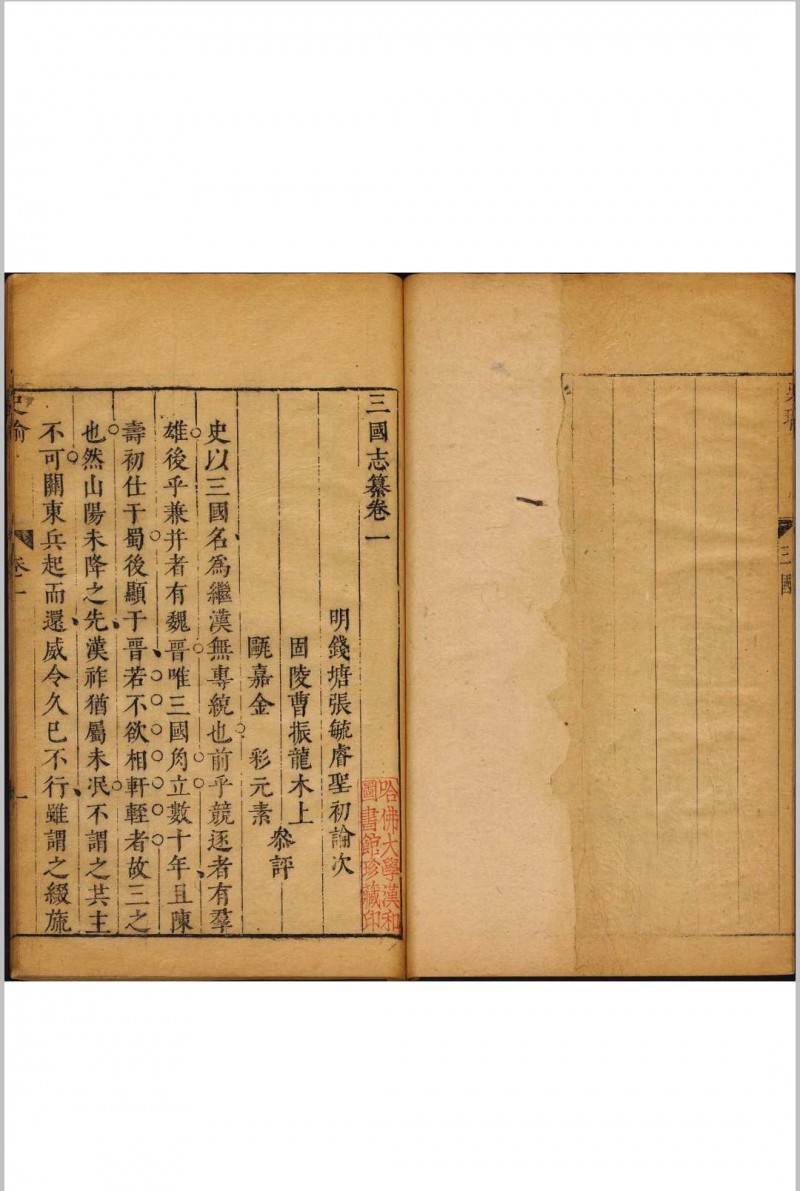 三國
三國志纂卷一
明錢塘張毓睿聖初論次
固陵曹振龍木上
甌嘉金　彩元素
參評
史以三國名爲繼漢無專統也前乎競逐者有羣
雄後乎兼并者有魏晉唯三國角立數十年且陳
壽初仕于蜀後顯于晉若不欲相軒輊者故三之
也然山陽未降之先漢祚猶屬未泯不謂之共主
不可關東兵起而還威令久已不行雖謂之綴旒
卷一
一
哈佛大學漢和
圖書館珍藏印